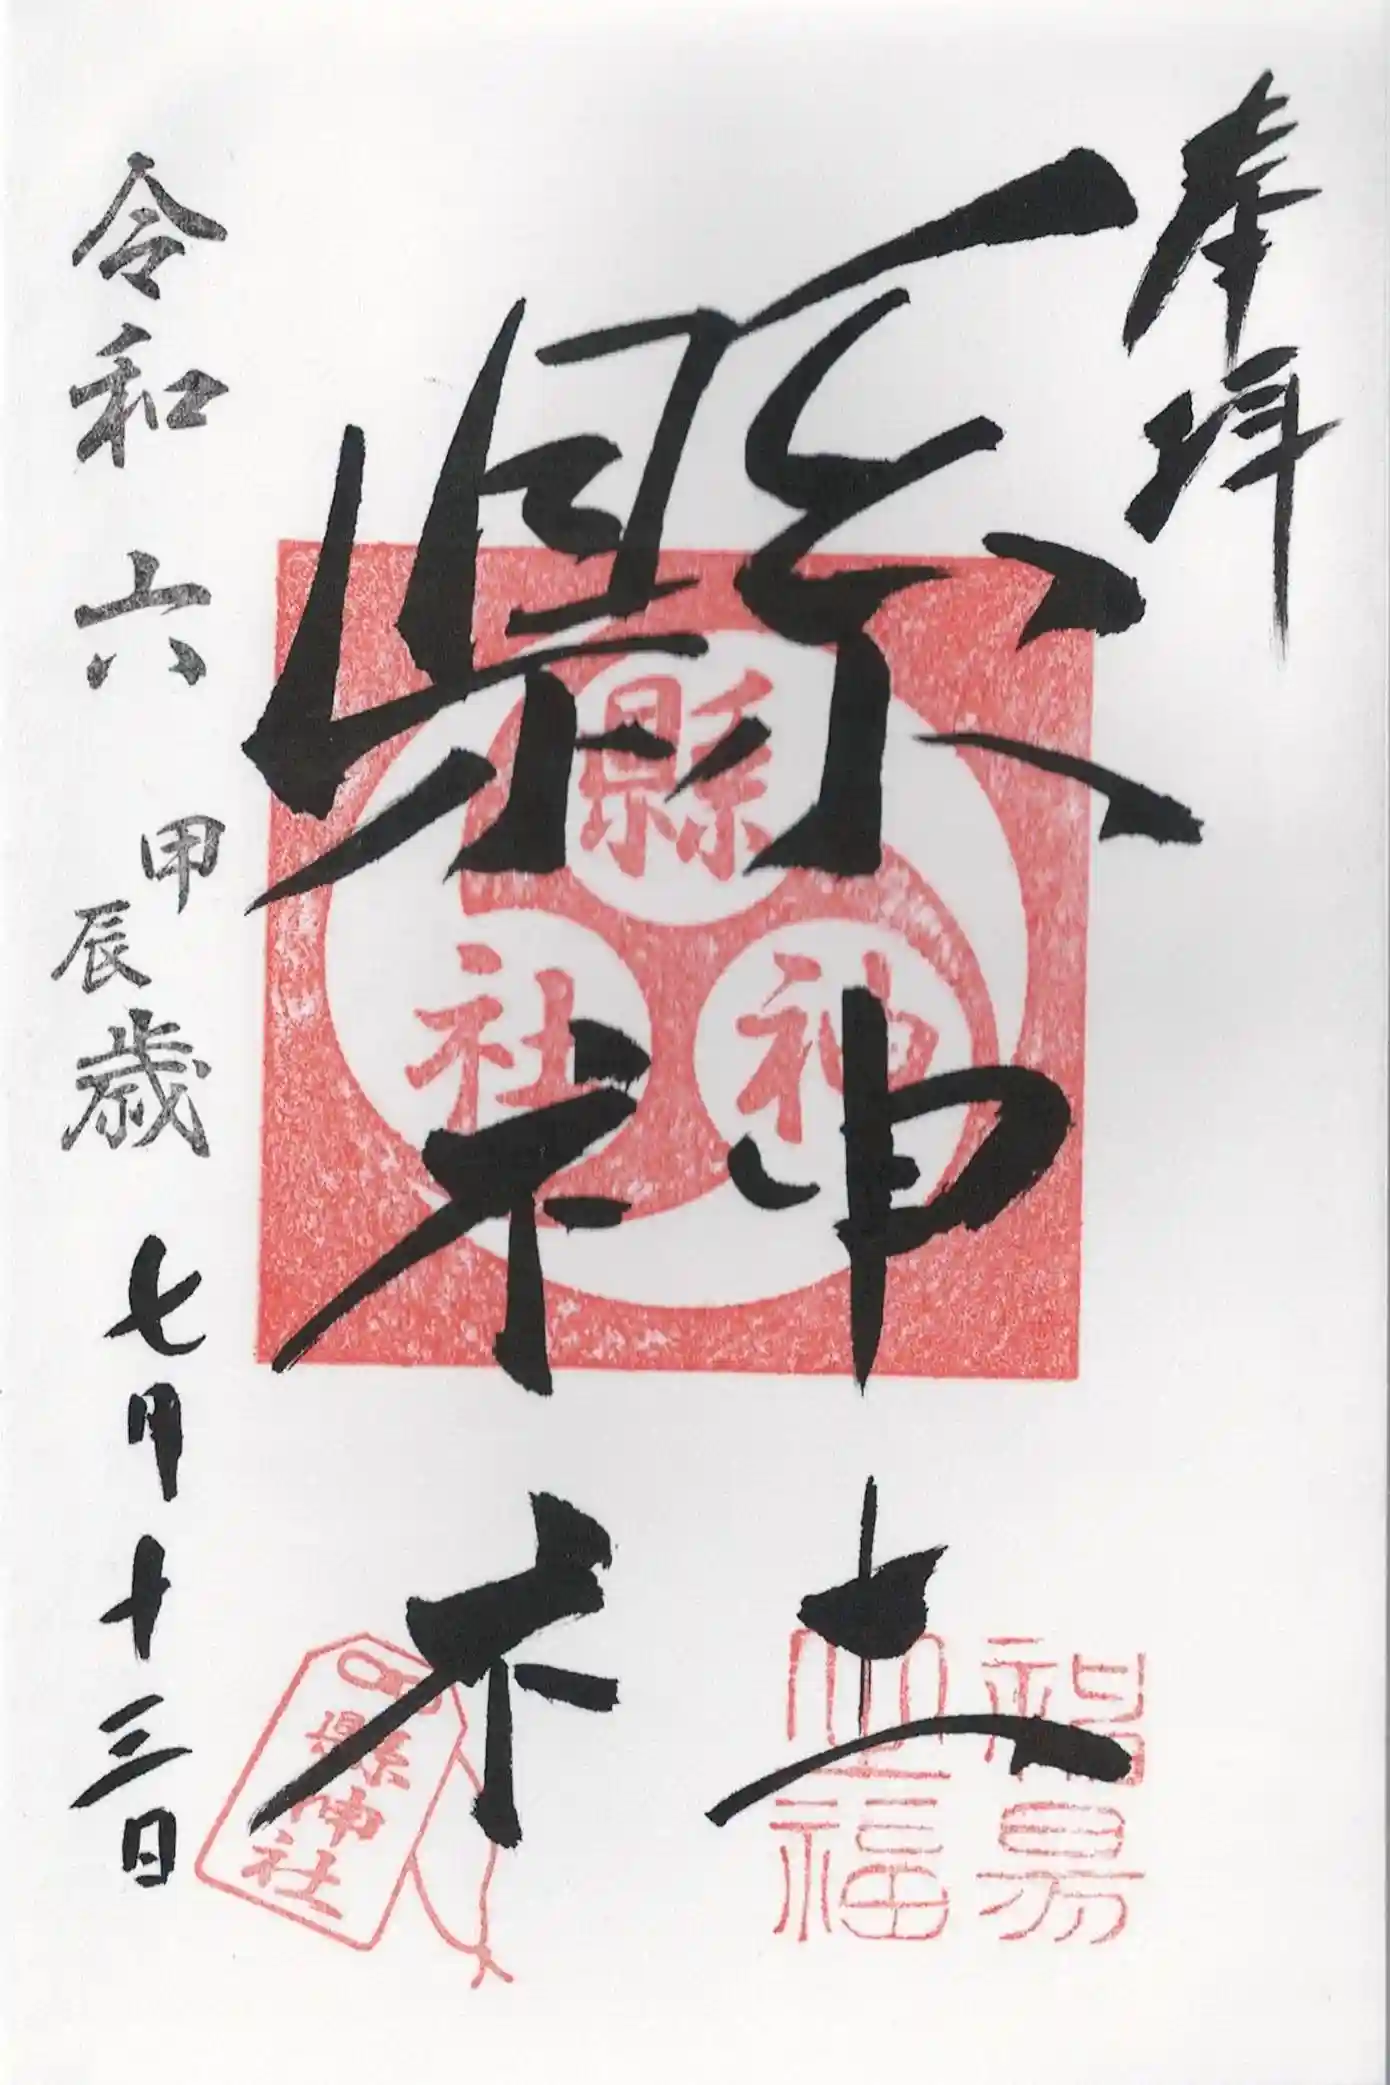 奉拝
縣神社
令和六甲辰歳七月十三日
縣神社
縣神社